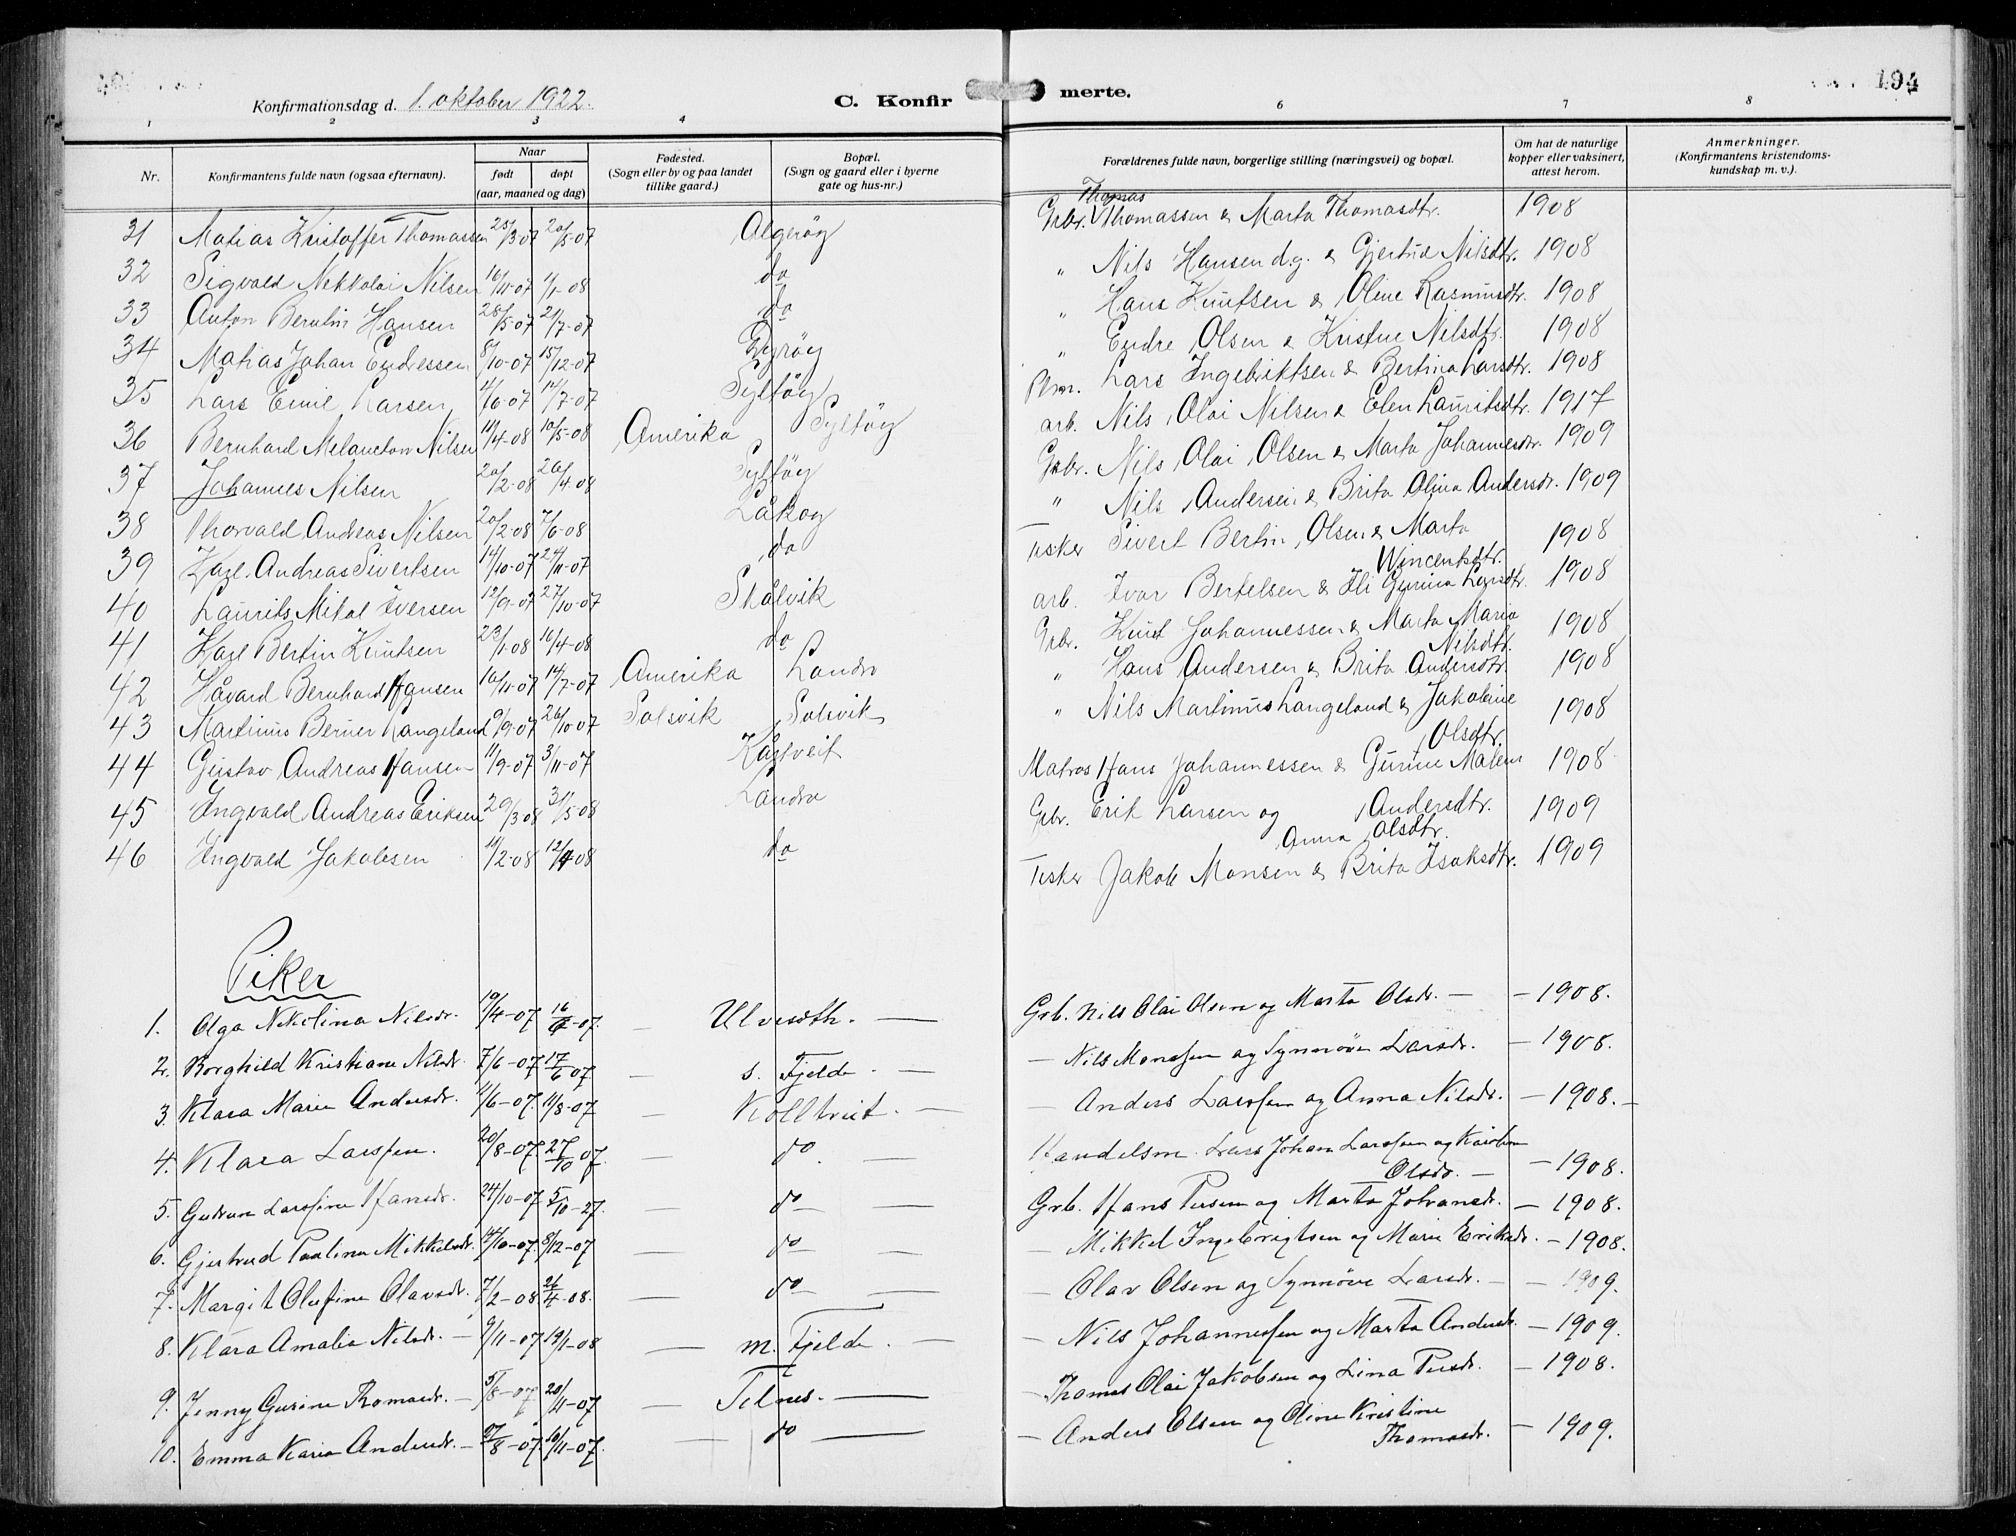 194
Konfirmationsdag d. 1. oktober 1922.
C. Konfir merte.
1 2 3 4 6 7 8
Nr.
Konfirmantens fulde navn (ogsaa efternavn).
Naar
født døpt
(aar, maaned og dag)
Fødested.
(Sogn eller by og paa landet
tillike gaard.)
Bopæl.
(Sogn og gaard eller i byerne
gate og hus-nr.)
Forældrenes fulde navn, borgerlige stilling (næringsvei) og bopæl.
Om hat de naturlige
kopper eller vaksinert,
attest herom.
Anmerkninger.
(Konfirmantens kristendoms-
kundskap m. v.)
31 Matias Kristoffer Thomassen 25/3-07 20/5-07 Algerøy Grbr. Thomas Thomassen & Marta Thomasdtr. 1908
32 Sigvald Nikkolai Nilsen 16/11-07 1/1-08 do " Nils Hansen d.y. & Gjertrud Nilsdtr. 1908
33 Anton Berntin Hansen 28/5-07 21/7-07 do " Hans Knutsen & Oline Rasmusdtr. 1908
34 Matias Johan Endressen 8/10-07 15/12-07 Geitrøy " Endre Olsen & Kristine Nilsdtr. 1908
35 Lars Emil Larsen 4/6-07 14/7-07 Syltøy Plm. Lars Ingebriktsen & Bertina Larsdtr. 1908
36 Bernhard Melancton Nilsen 11/4-08 10/5-08 Amerika Syltøy arb. Nils Olai Nilsen & Elen Lauritsdtr. 1917
37 Johannes Nilsen 20/2-08 26/4-08 Syltøy Grbr. Nils Olai Olsen & Marta Johannesdtr. 1909
38 Thorvald Andreas Nilsen 20/2-08 7/6-08 Låkøy " Nils Andersen & Brita Olina Andersdtr. 1909
39 Karl Andreas Sivertsen 14/10-07 24/11-07 do Fisker Sivert Bertin Olsen & Marta
Wincentsdtr. 1908
40 Laurits Mikal Iversen 12/9-07 27/10-07 Skålvik arb. Ivar Bertelsen & Eli Gurina Larsdtr. 1908
41 Karl Bertin Knutsen 23/1-08 16/4-08 do Grbr. Knut Johannessen & Marta Maria
Nilsdtr. 1908
42 Håvard Bernhard Hansen 10/11-07 14/7-07 Amerika Landro " Hans Andersen & Brita Andersdtr. 1908
43 Martinus Berner Langeland 9/9-07 26/10-07 Solsvik Solsvik " Nils Martinus Langeland & Jakobine
Olsdtr. 1908
44 Gustav Andreas Hansen 11/9-07 3/11-07 Kårtveit Matros Hans Johannessen & Gurine Malene 1908
Andersdtr.
45 Ingvald Andreas Eriksen 29/3-08 31/5-08 Landro Grbr. Erik Larsen og
Anna Olsdtr. 1909
46 Ingvald Jakobsen 11/2-08 12/4-08 do Fisker Jakob Monsen & Brita Isaksdtr. 1909
Piker
1. Olga Nikolina Nilsdr. 19/4-07 16/6-07. — Ulvesøth. — Grb. Nils Olai Olsen og Marta Olsdr. — — 1908.
2. Borghild Kristiane Nilsdr. 7/6-07 17/6 07 — s. Fjelde. — — Nils Monsen og Synnøve Larsdr. — 1908.
3. Klara Marie Andersdr. 4/6-07. 11/8-07 — Kolltveit. — — Anders Larssen og Anna Nilsdr. — 1908. —
4. Klara Larssen. 20/8-07 27/10 07. — do. — Handelsm. Lars Johan Larssen og Karoline
Olsdr. — — 1908.
5. Gudrun Larsine Hansdr. 24/10-07 5/10-27. — do — Grb. Hans Persen og Marta Johansdr. — 1908.
6. Gjertrud Paulina Mikkelsdr. 14/10-07. 8/12-07 — do — — Mikkel Ingebrigtsen og Marie Eriksdr. — 1908.
7. Margit Olufine Olavsdr. 7/2-08 26/4-08. — do — — Olav Olsen og Synnøve Larsdr. — — 1909.
8. Klara Amalia Nilsdr. — 9/11-07 19/1-08 — m. Fjelde. — — Nils Johannessen og Marta Andersdr. — 1909.
9. Jenny Gurine Thomasdr. — 5/8-07 20/11-07 — Telnes. — — Thomas Olai Jakobsen og Lina Persdr. — 1908.
10. Emma Karia Andersdr. — 27/8-07 10/11-07. — do — — Anders Olsen og Oline Kristine
Thomasdr. — 1909.